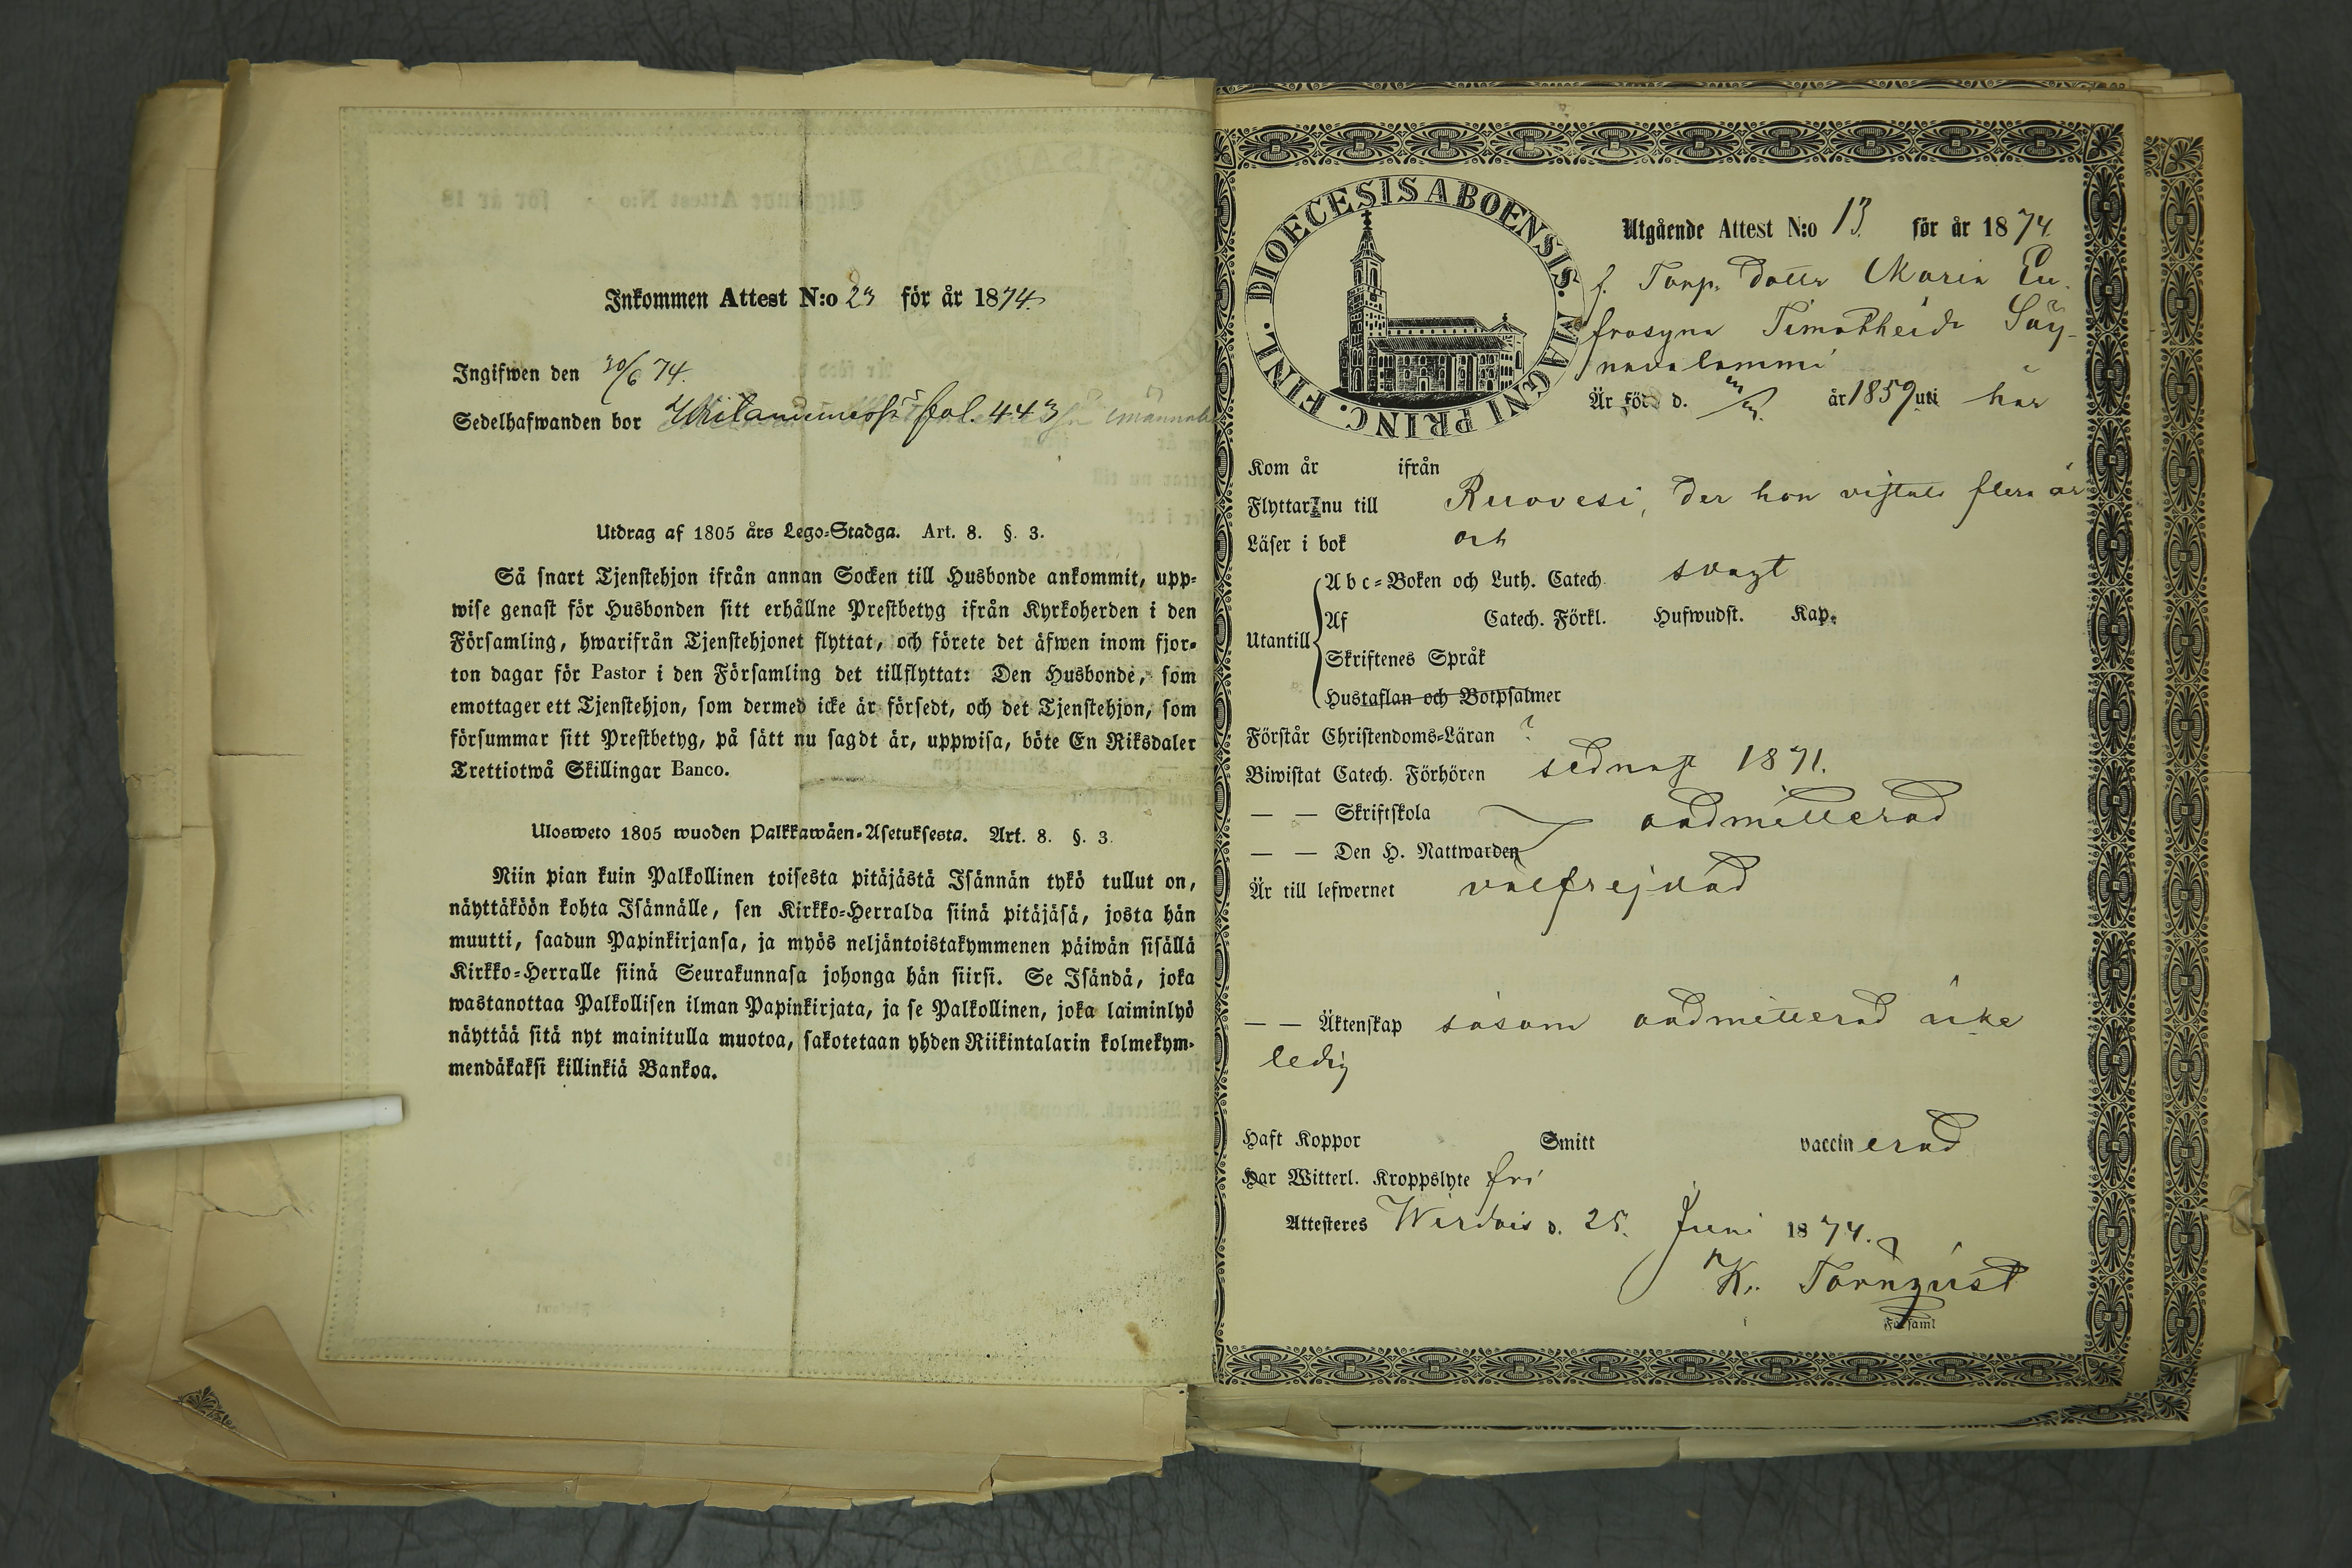 Inkommen Attest N:o 23 för år 1874.
Ingifwen den 30/6 74.
Sedelhafwanden bor fol. 443
Utdrag af 1805 års Lego-Stadga. Art. 8. §. 3.
Så snart Tjenstehjon ifrån annan Socken till Husbonde ankommit, upp-
wise genast för Husbonden sitt erhållne Prestbetyg ifrån Kyrkoherden i den
Församling, hwarifrån Tjenstehjonet flyttat, och förete det äfwen inom fjor-
ton dagar för Pastor i den Församling det tillflyttat: Den Husbonde, som
emottager ett Tjenstehjon, som dermed icke är försedt, och det Tjenstehjon, som
försummar sitt Prestbetyg, på sätt nu sagdt är, uppwisa, böte En Riksdaler
Trettiotwå Skillingar Banco.
Ulosweto 1805 wuoden Palkkawäen-Asetuksesta. Art. 8. §. 3.
Niin pian kuin Palkollinen toisesta pitäjästä Isännän tykö tullut on,
näyttäköön kohta Isännälle, sen Kirkko-Herralda siinä pitäjäsä, josta hän
muutti, saadun Papinkirjansa, ja myös neljäntoistakymmenen päiwän sisällä
Kirkko-Herralle siinä Seurakunnasa johonga hän siirsi. Se Isändä, joka
wastanottaa Palkollisen ilman Papinkirjata, ja se Palkollinen, joka laiminlyö
näyttää sitä nyt mainitulla muotoa, sakotetaan yhden Riikintalarin kolmekym-
mendäkaksi killinkiä Bankoa.
DIOECESIS ABOENSIS. MAGNI PRINC. FINL.
Utgående Attest N:o 13 för år 1874
f. Torp. dottr Maria Eu-
frosyna Timotheidr Säy-
navalammi
Är född d. år 1859 uti här
Kom år ifrån
Flyttar nu till Ruovesi, der hon vistats flera år
Läser i bok och
Abc-Boken och Luth. Catech. svagt
Af Catech. Förkl. Hufwudst. Kap.
Utantill
Skriftenes Språk
Hustaflan och Botpsalmer
Förstår Christendoms-Läran ?
Biwistat Catech. Förhören sednast 1871.
— — Skriftskola oadmitterad
— — Den H. Nattwarden
Är till lefwernet välfrejdad
— — Äktenskap såsom oadmitterad icke
ledig
Haft Koppor Smitt vaccinerad
Har Witterl. Kroppslyte fri
Attesteres Wirdois d. 25. Juni 1874.
K. Törnqvist
Församl